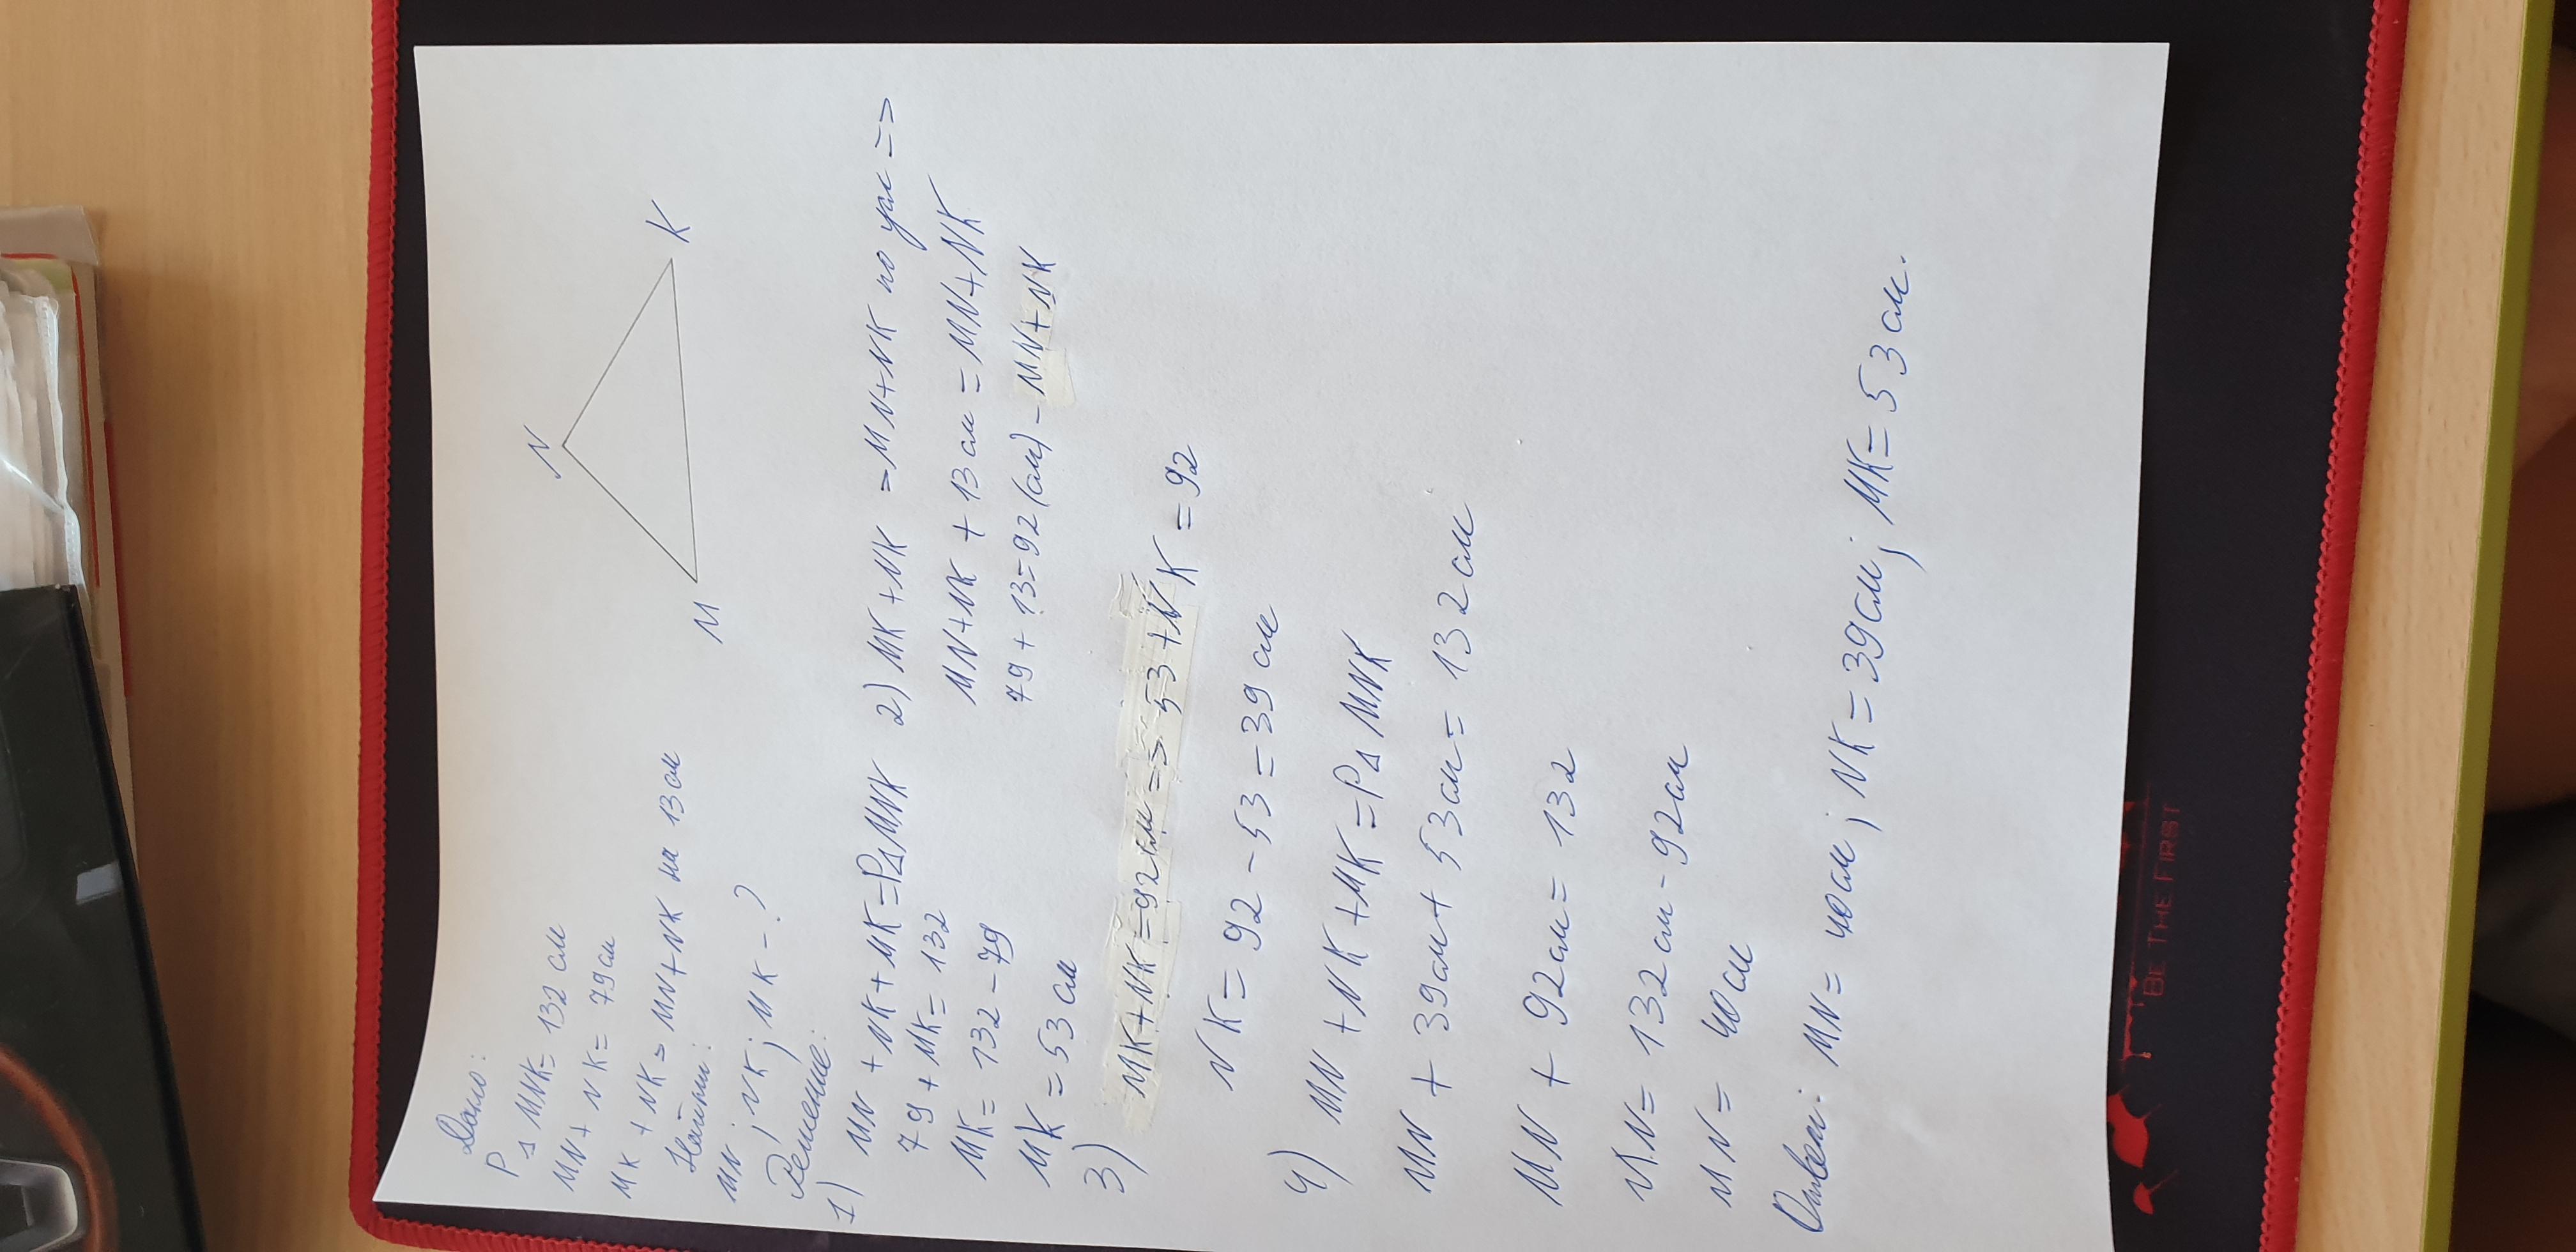 Дано:
P △ MNK = 132 см
MN + NK = 79 см
MK + NK > MN + NK на 13 см
Найти:
MN ; NK ; MK - ?
Решение:
N
M
K
1) MN + NK + MK = P△MNK
79 + MK = 132
MK = 132 - 79
MK = 53 см
2) MK + NK - MN + NK по усл =>
MN + NK + 13 см = MN + NK
79 + 13 = 92 (см) - MN + NK
3)
MK + NK = 92 см => 53 + NK = 92
NK = 92 - 53 = 39 см
4) MN + NK + MK = P△ MNK
MN + 39 см + 53 см = 132 см
MN + 92 см = 132
MN = 132 см - 92 см
MN = 40 см
Ответ: MN = 40 см ; NK = 39 см ; MK = 53 см.
BE THE FIRST